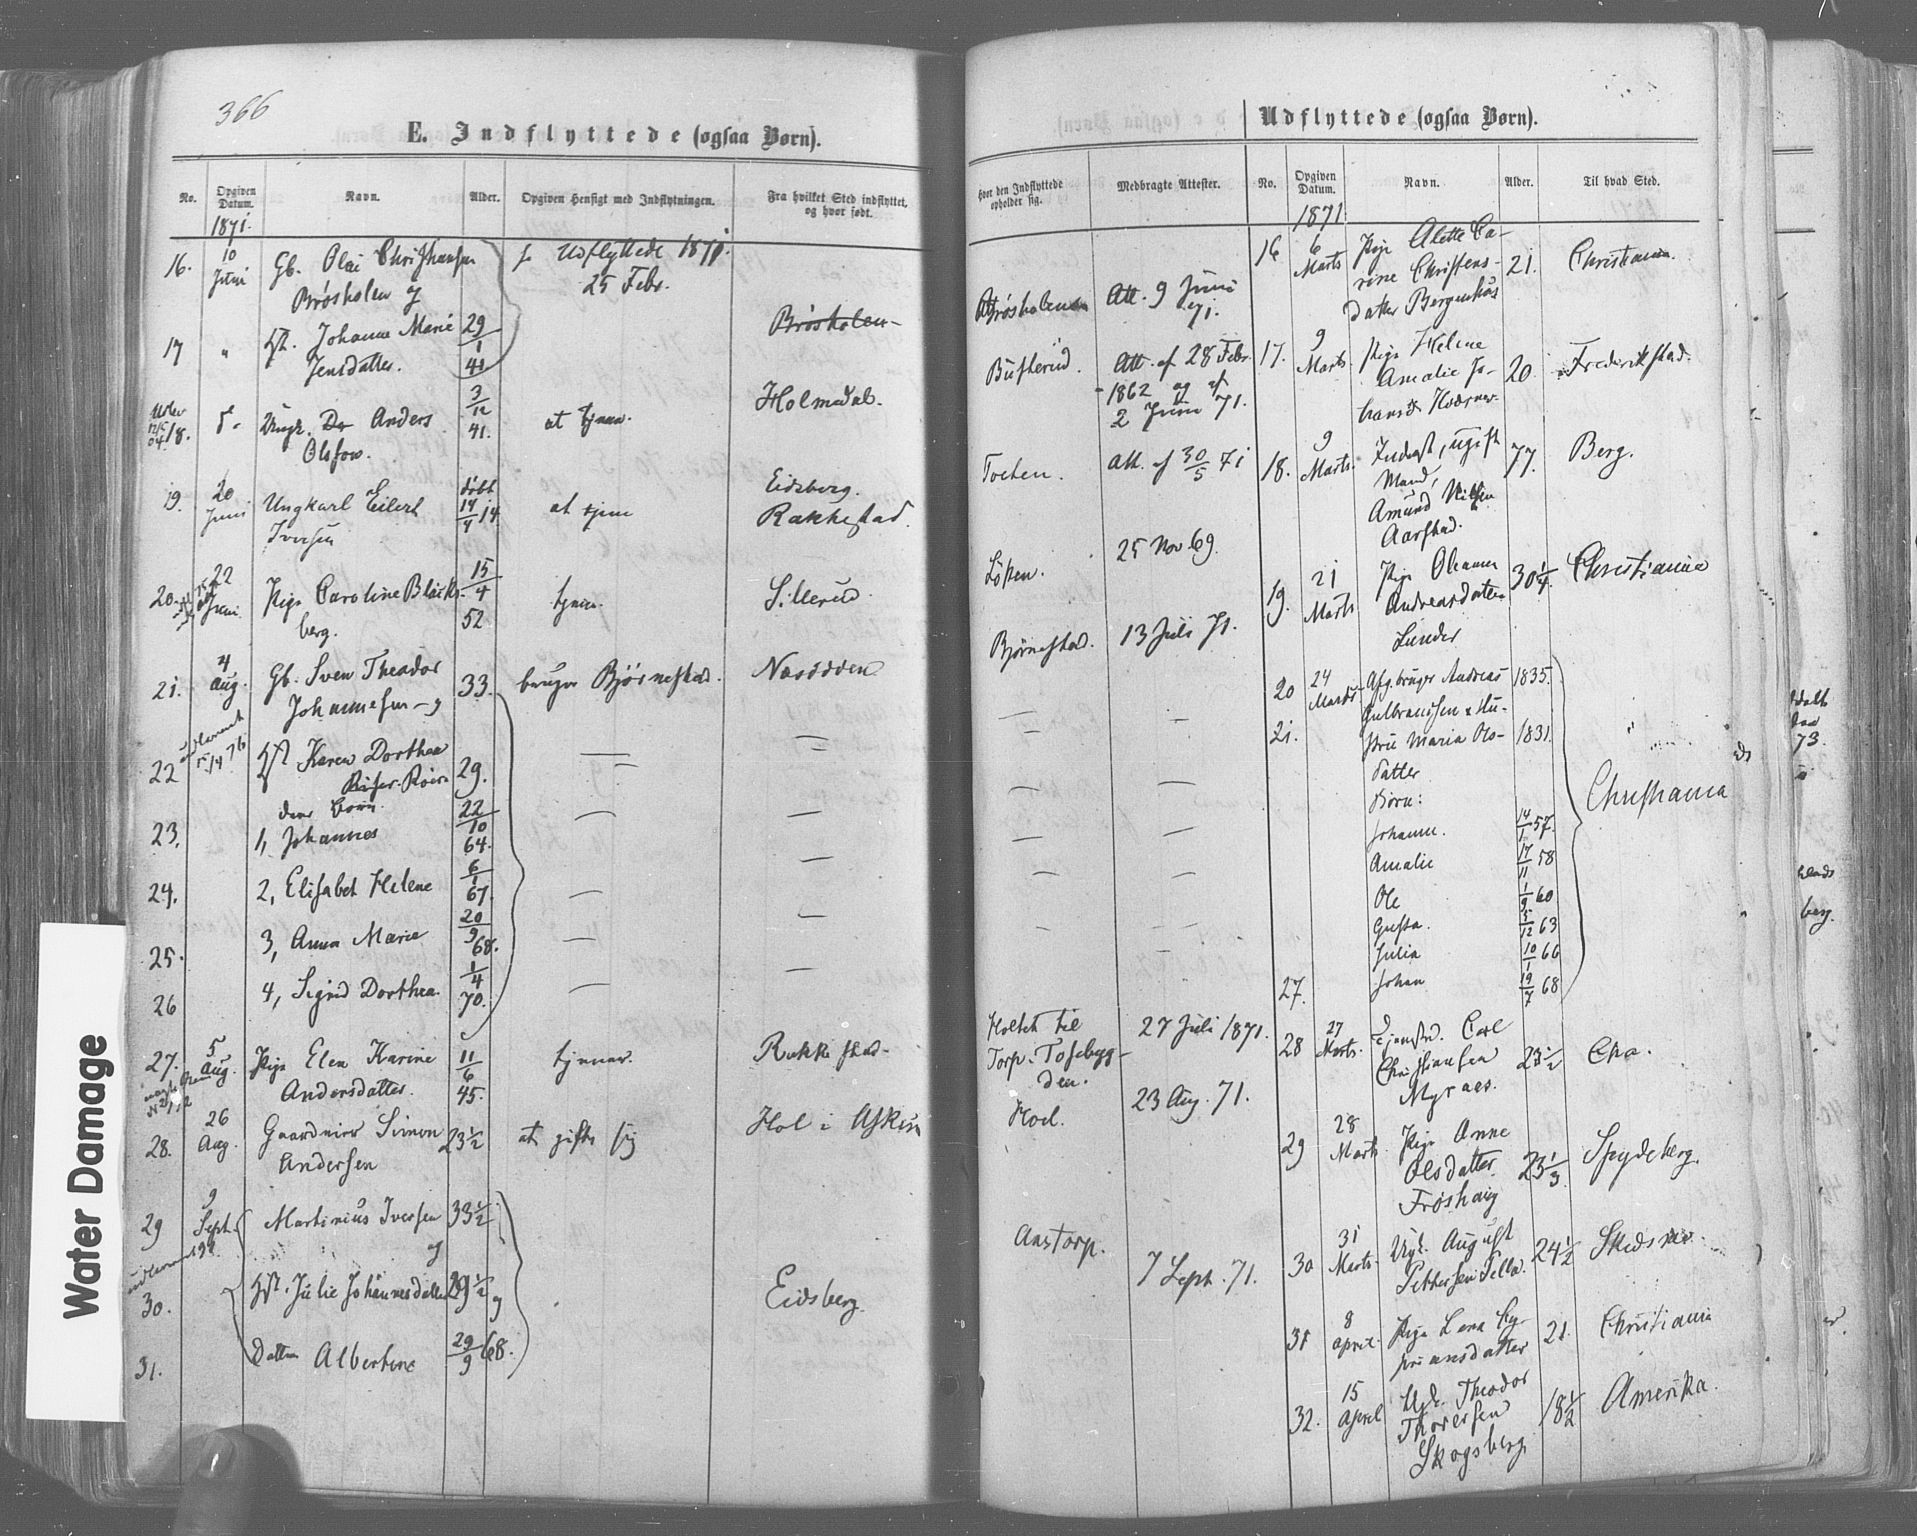 366
E. Indflyttede (ogsaa Børn).
No.
Opgiven Datum.
Navn.
Alder.
Opgiven Hensigt med Indflytningen.
Fra hvilket Sted indflyttet, og hvor født.
1871.
16. 10 Juni Gb. Olai Christiansen Udflyttede 1871.
Brøsholen 25 Febr.
17 " Johanne Marie 29/1 41 Brøsholen
Jensdatter.
18. Anders 3/12 41. at tjene. Holmedal.
Olsson.
19. 20 Juni Ungkarl Eilert døbt 14/4 14 at tjene Eidsberg.
Iversen Rakkestad.
20. 22 Juni Pige Caroline 15/4 52 tjene. Sillerud.
berg.
21. 4 Aug. Gb. Sven Theodor 33. bruger Bjørnestad. Næsodden
Johannesen
22 Karen Dorthea 29. — —
deres Børn
23. 1, Johannes 22/10 64. — —
24. 2, Elisabet Helene 6/1 67. — —
25. 3, Anna Marie 20/9 68. — —
26 4, Sigrid Dorthea 1/4 70. — —
27. 5 Aug. Pige Elen Karine 11/6 45. tjener. Rakkestad.
Andersdatter.
28. 26 Aug. Gaardmier Simon 23½ at gifte sig Hol i Askim
Andersen
29 9 Sept. Martinius Iversen 33½
30. Julie Johannesdatter 29½ Eidsberg.
31. Datter Albertine 29/9 68.
Hvor den Indflyttede opholder sig.
Medbragte Attester.
Brøsholen Att. 9 Juni 71.
Busterud. Att. af 28 Febr. 1862 og af 2 Juni 71.
Tochen. Att. af 30/5 71
Løken. 25 Nov. 69.
Bjørnestad. 13 Juli 71.
— —
— —
— —
— —
— —
Holtet til 27 Juli 1871.
Torp. Tosebyg-
den.
Hoel. 23 Aug. 71.
Aastorp. 7 Sept. 71.
Udflyttede (ogsaa Børn).
No.
Opgiven Datum.
Navn.
Alder.
Til hvad Sted.
1871
16 6 Marts Pige Alette Ca- 21. Christiania.
rine Christens-
datter Bergenhus
17. 9 Marts Pige Helene 20. Frederikstad.
Amalie Jo-
18. 9 Marts. Inderst, ugift 77. Berg.
Mand,
Amund Nilsen
Aarstad.
19. 21 Marts Pige Oleanna 30¼ Christiania
Andreasdatter
Lunder
20 24 Marts Afg. bruger Andreas 1835.
Gulbranssen & Hu-
21. stru Maria Ols- 1831.
datter
Børn: Christiania
Johanne. 14/1 57.
Amalie 17/11 58
Ole 1/9 60
Gusta. 5/12 63
Julia 10/1 66
27. Johan 19/7 68
28 27 Marts. Tjenestd. Carl 23½ Cha.
Christiansen
Myraes.
29 28 Marts Pige Anne 23⅓ Spydeberg.
Olsdatter
Frøshaug
30 31 Marts. Ugk. August 24½ Skedsmo.
Pettersen
31 8 April. Pige Lena Cy- 21. Christiania
priansdatter
32. 15 April Theodor 18½ Amerika.
Thoresen
Skogsberg
73.
berg.
Water Damage